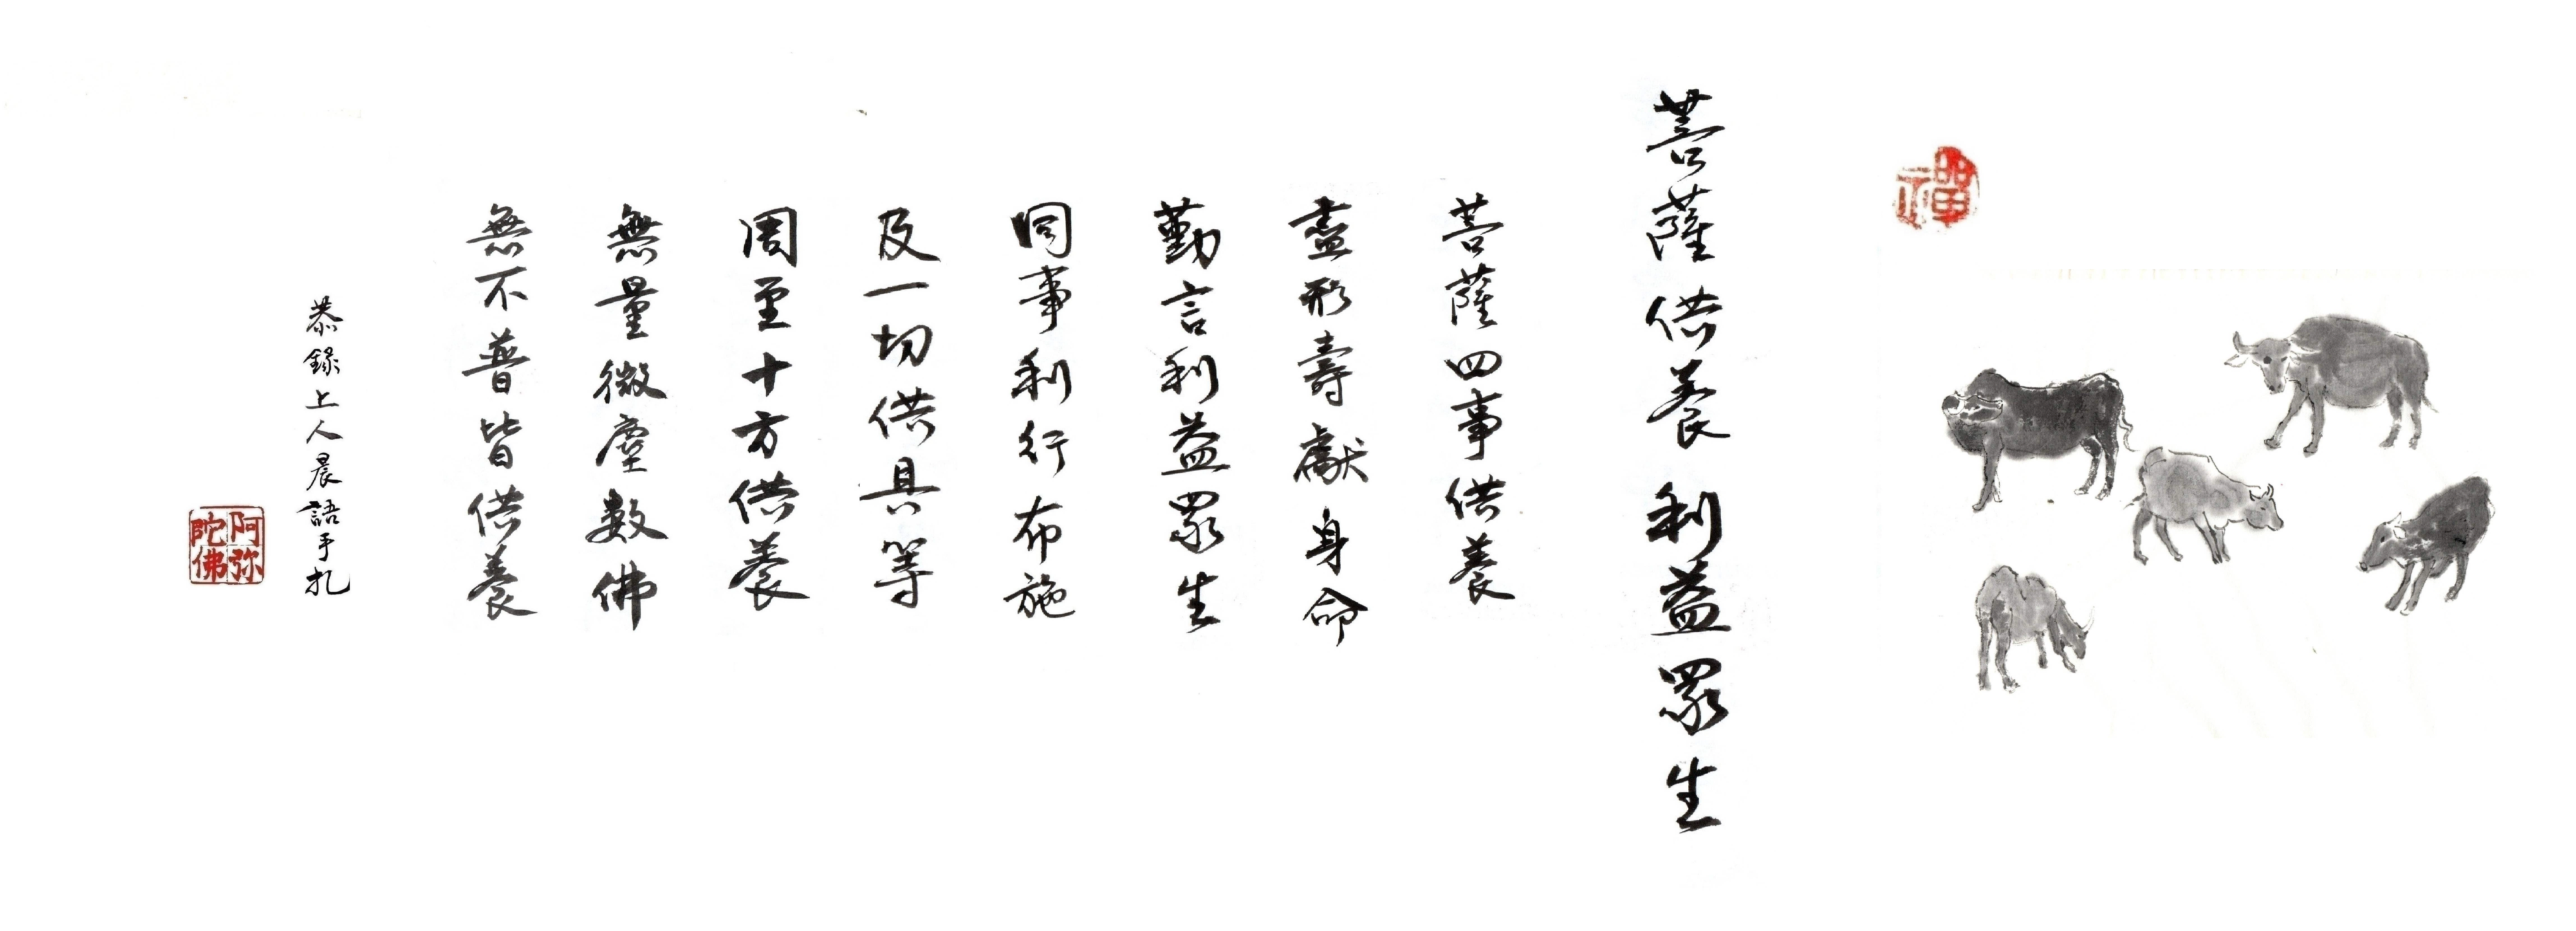 禪
菩薩供養利益眾生
菩薩四事供養
盡形壽獻身命
勤言利益眾生
同事利行布施
及一切供具等
周至十方供養
無量微塵數佛
無不普皆供養
恭錄上人晨語手札
阿弥陀佛